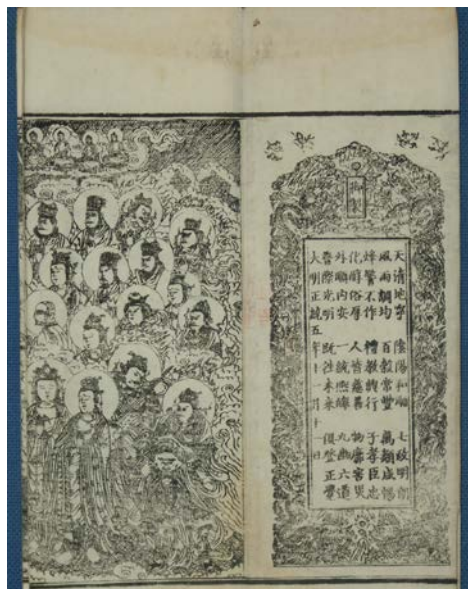 御製
天清地寧 陰陽和順 七政明朗
風雨調均 百穀常豐 萬類咸暢
烽警不作 禮教 行 子孝臣忠
化醇俗厚 人皆慈善 物靡害災
外順內安 一統熙皞 九幽六道
普際光明 既往未來 俱登正覺
大明正統五年十一月十一日